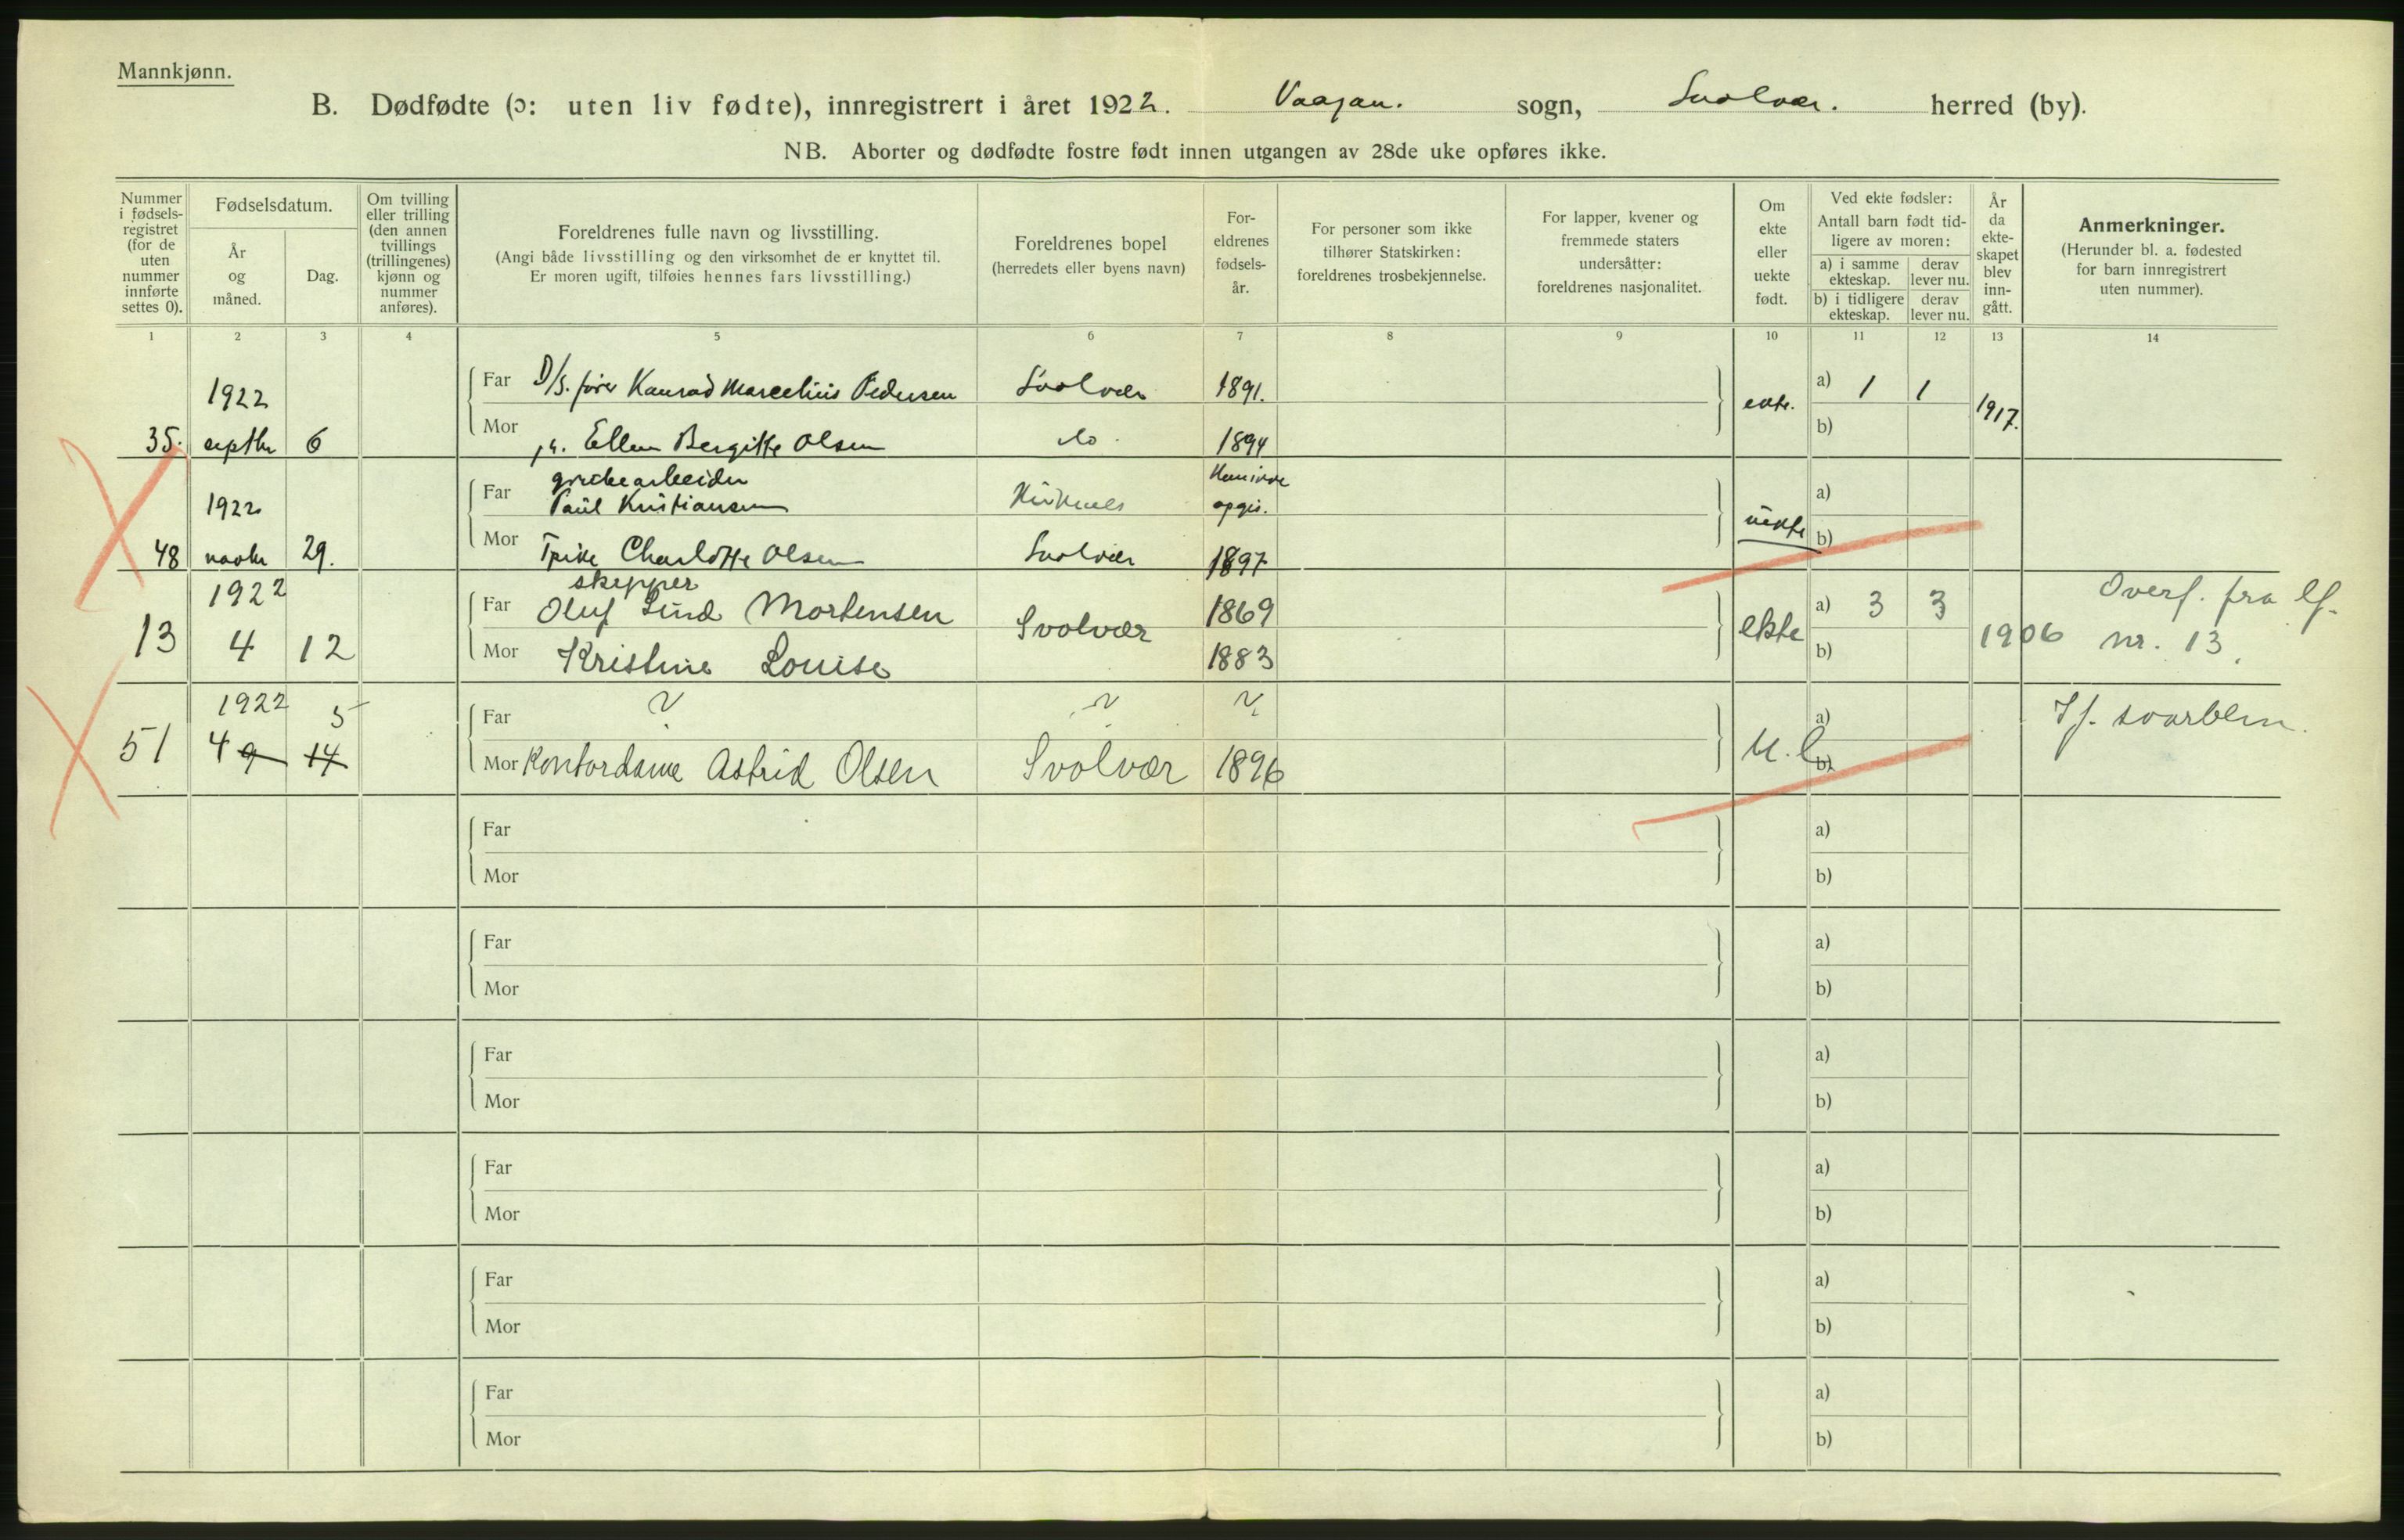 Mannkjønn.
B. Dødfødte (ɔ: uten liv fødte), innregistrert i året 1922. Vaagan. sogn, Svolvær. herred (by).
NB. Aborter og dødfødte fostre født innen utgangen av 28de uke opføres ikke.
Nummer
i fødsels-
registret
(for de
uten
nummer
innførte
settes 0).
Fødselsdatum.
År
og
måned.
Dag.
Om tvilling
eller trilling
(den annen
tvillings
(trillingenes)
kjønn og
nummer
anføres).
Foreldrenes fulle navn og livsstilling.
(Angi både livsstilling og den virksomhet de er knyttet til.
Er moren ugift, tilføies hennes fars livsstilling.)
Foreldrenes bopel
(herredets eller byens navn)
For-
eldrenes
fødsels-
år.
For personer som ikke
tilhører Statskirken:
foreldrenes trosbekjennelse.
For lapper, kvener og
fremmede staters
undersåtter:
foreldrenes nasjonalitet.
Om
ekte
eller
uekte
født.
Ved ekte fødsler:
Antall barn født tid-
ligere av moren:
a) i samme
ekteskap.
derav
lever nu.
b) i tidligere
ekteskap.
derav
lever nu.
År
da
ekte-
skapet
blev
inn-
gått.
Anmerkninger.
(Herunder bl. a. fødested
for barn innregistrert
uten nummer).
1 2 3 4 5 6 7 8 9 10 11 12 13 14
1922 Far D/S. fører Konrad Marcelius Pedersen Svolvær 1891. ekte. a) 1 1 1917.
35. septbr 6 Mor Ellen Bergitte Olsen do. 1894 b)
grubearbeider
1922 Far Paul Kristiansen Kirkenes opgis. uekte a)
48 novbr 29. Mor Charlotte Olsen Svolvær 1897 b)
skipper
1922 Far Oluf Lind Mortensen Svolvær 1869 ekte a) 3 3 1906 Overf. fra lf.
13 4 12 Mor Kristine Louise 1883 b) nr. 13.
1922 5 Far ? ? ? u. e. a) If. svarblen.
51 4 9 14 Mor Kontordame Astrid Olsen Svolvær 1896 b)
Far a)
Mor b)
Far a)
Mor b)
Far a)
Mor b)
Far a)
Mor b)
Far a)
Mor b)
Far a)
Mor b)